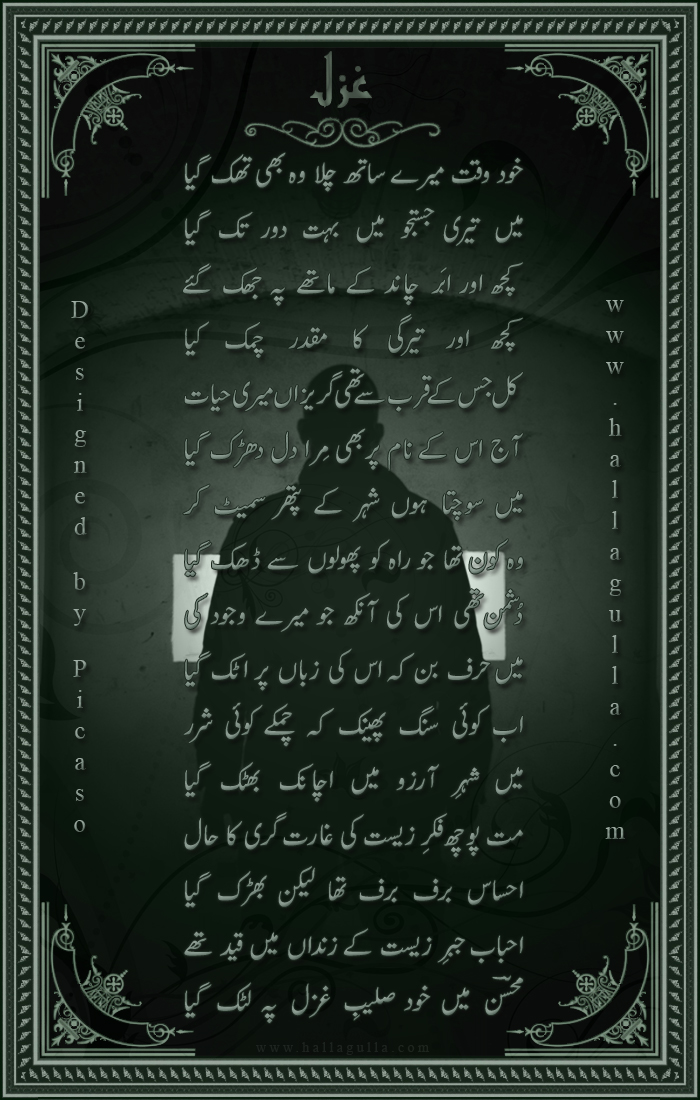 غزل
خود وقت میرے ساتھ چلا وہ بھی تھک گیا
میں تیری جستجو میں بہت دور تک گیا
کچھ اور ابَر چاند کے ماتھے پہ جھک گئے
کچھ اور تیرگی کا مقدر چمک گیا
کل جس کے قرب سے تھی گریزاں میری حیات
آج اس کے نام پر بھی مِرا دل دھڑک گیا
میں سوچتا ہوں شہر کے پتھر سمیٹ کر
وہ کون تھا جو راہ کو پھولوں سے ڈھک گیا
دُشمن تھی اس کی آنکھ جو میرے وجود کی
میں حرف بن کہ اس کی زباں پر اٹک گیا
اب کوئی سَنگ پھینک کہ چمکے کوئی شرر
میں شہرِ آرزو میں اچانک بھٹک گیا
مت پوچھ فکرِ زیست کی غارت گری کا حال
احساس برف برف تھا لیکن بھڑک گیا
احباب جبرِ زیست کے زنداں میں قید تھے
محسؔن میں خود صلیبِ غزل پہ لٹک گیا
Designed by Picaso
www.hallagulla.com
www.hallagulla.com